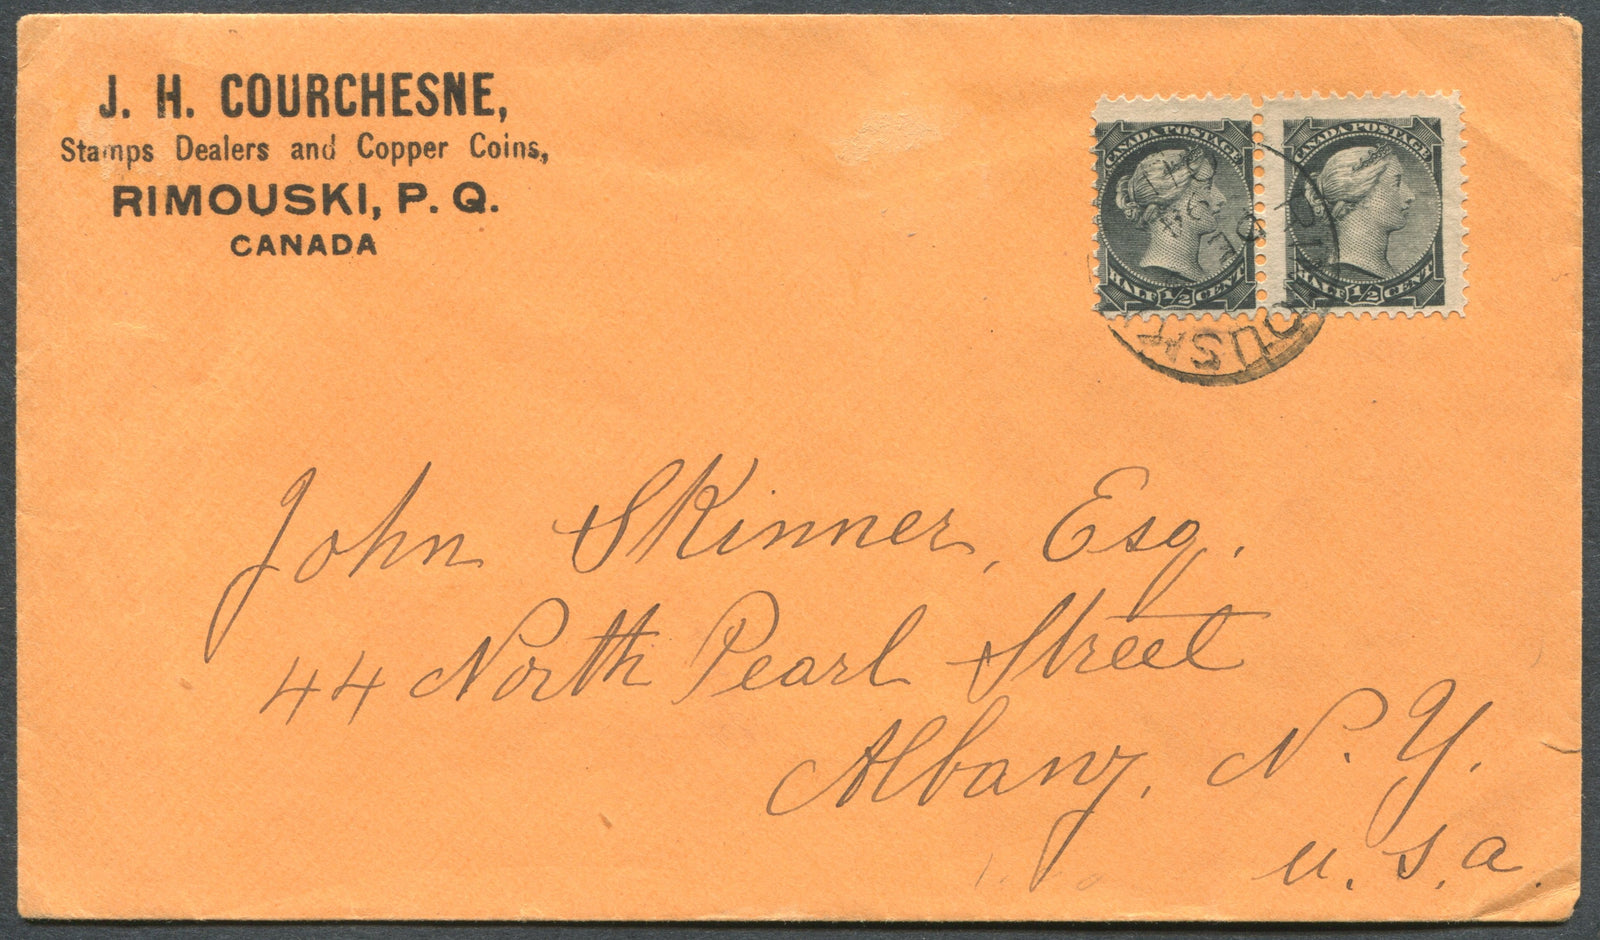 J. H. COURCHESNE,
Stamps Dealers and Copper Coins,
RIMOUSKI, P. Q.
CANADA
CANADA POSTAGE
HALF 1/2 CENT
CANADA POSTAGE
HALF 1/2 CENT
RIMOUSKI
DE
94
John Skinner, Esq.
44 North Pearl Street
Albany, N. Y.
U. S. A.